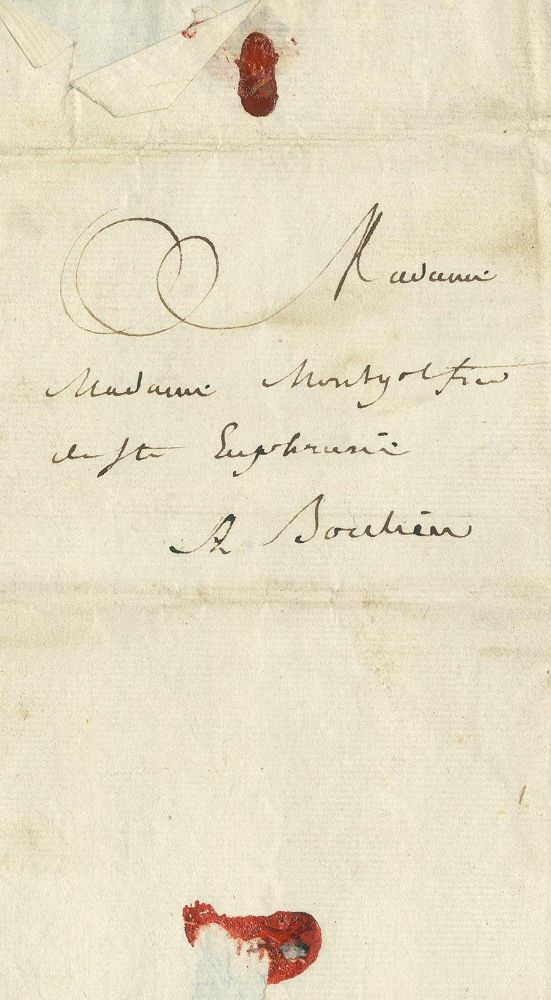 Madame
Madame Montgolfier
de Ste Euphrasie
A Boulieu